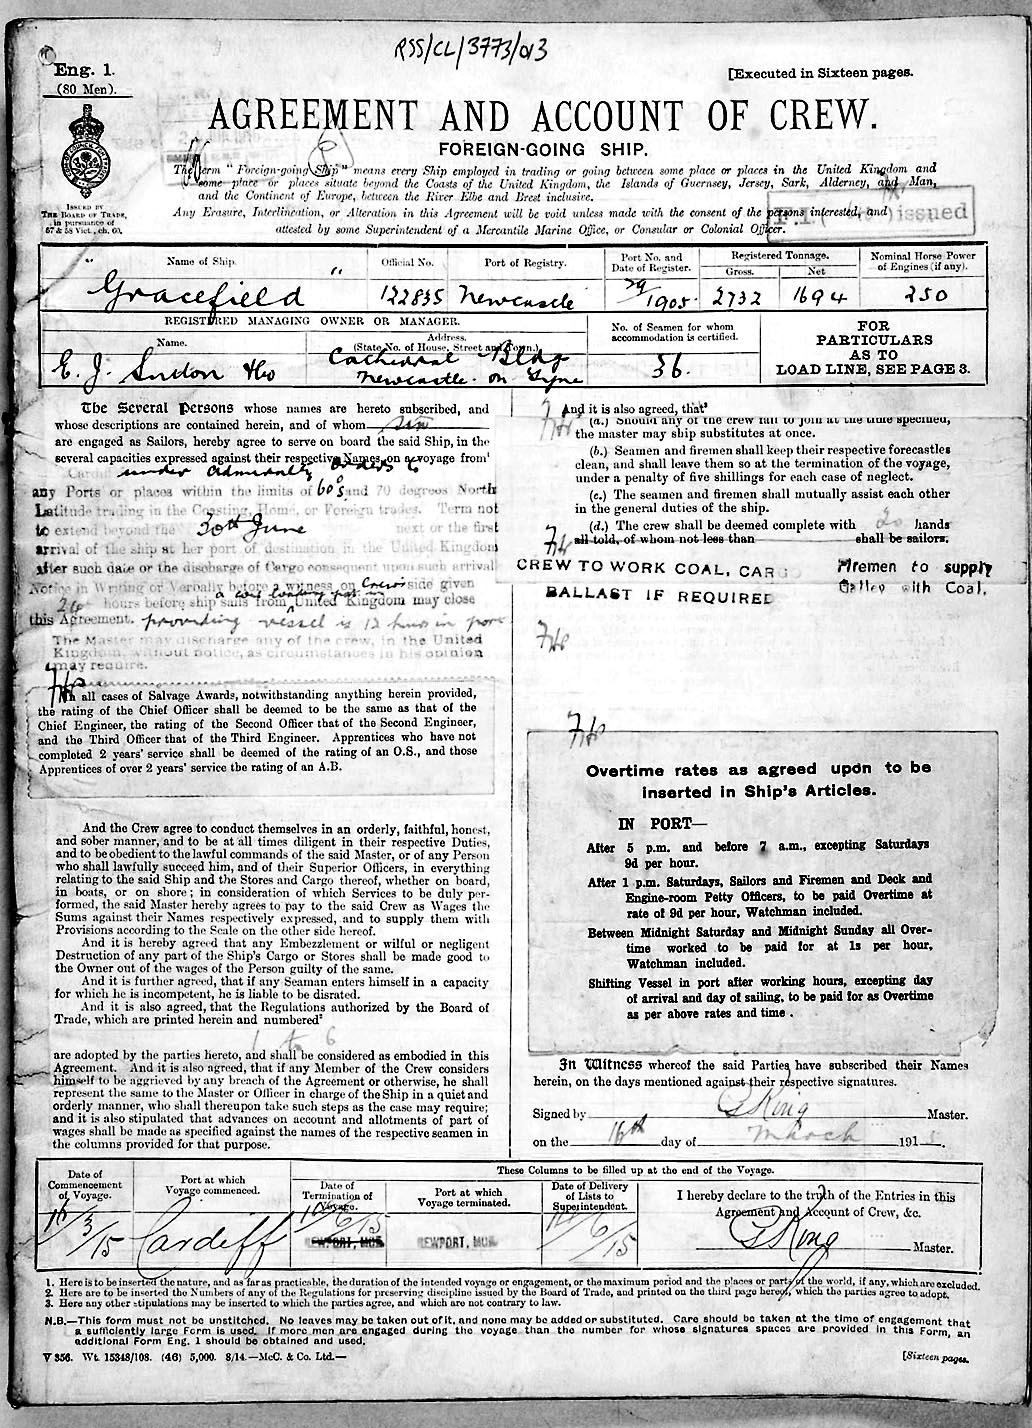 RSS/CL/3773/013
Eng. 1.
(80 Men).
[Executed in Sixteen pages.
AGREEMENT AND ACCOUNT OF CREW.
FOREIGN-GOING SHIP.
The term "Foreign-going Ship" means every Ship employed in trading or going between some place or places in the United Kingdom and
some place or places situate beyond the Coasts of the United Kingdom, the Islands of Guernsey, Jersey, Sark, Alderney, and Man,
and the Continent of Europe, between the River Elbe and Brest inclusive.
Any Erasure, Interlineation, or Alteration in this Agreement will be void unless made with the consent of the persons interested, and
attested by some Superintendent of a Mercantile Marine Office, or Consular or Colonial Officer.
issued
ISSUED BY
THE BOARD OF TRADE,
in pursuance of
57 & 58 Vict., ch. 60.
Name of Ship.
Official No.
Port of Registry.
Port No. and Date of Register.
Registered Tonnage.
Gross.
Net
Nominal Horse Power of Engines (if any).
" Gracefield "
122835
Newcastle
29/1905
2732
1694
250
REGISTERED MANAGING OWNER OR MANAGER.
Name.
Address.
(State No. of House, Street and Town.)
No. of Seamen for whom accommodation is certified.
FOR
PARTICULARS
AS TO
LOAD LINE, SEE PAGE 3.
E. J.
Cathedral Bldg
Newcastle on Tyne
36.
The Several Persons whose names are hereto subscribed, and
whose descriptions are contained herein, and of whom six
are engaged as Sailors, hereby agree to serve on board the said Ship, in the
several capacities expressed against their respective Names, on a voyage from¹
Cardiff under admiralty orders to
any Ports or places within the limits of 60°S and 70 degrees North
Latitude trading in the Coasting, Home, or Foreign trades. Term not
to extend beyond the 30th June next or the first
arrival of the ship at her port of destination in the United Kingdom
after such date or the discharge of Cargo consequent upon such arrival
Notice in Writing or Verbally before a witness on Crew's side given
24 hours before ship sails from a coal loading port in United Kingdom may close
this Agreement. providing vessel is 12 hours in port
The Master may discharge any of the crew, in the United
Kingdom, without notice, as circumstances in his opinion
may require.
In all cases of Salvage Awards, notwithstanding anything herein provided,
the rating of the Chief Officer shall be deemed to be the same as that of the
Chief Engineer, the rating of the Second Officer that of the Second Engineer,
and the Third Officer that of the Third Engineer. Apprentices who have not
completed 2 years' service shall be deemed of the rating of an O.S., and those
Apprentices of over 2 years' service the rating of an A.B.
And the Crew agree to conduct themselves in an orderly, faithful, honest,
and sober manner, and to be at all times diligent in their respective Duties,
and to be obedient to the lawful commands of the said Master, or of any Person
who shall lawfully succeed him, and of their Superior Officers, in everything
relating to the said Ship and the Stores and Cargo thereof, whether on board,
in boats, or on shore; in consideration of which Services to be duly per-
formed, the said Master hereby agrees to pay to the said Crew as Wages the
Sums against their Names respectively expressed, and to supply them with
Provisions according to the Scale on the other side hereof.
And it is hereby agreed that any Embezzlement or wilful or negligent
Destruction of any part of the Ship's Cargo or Stores shall be made good to
the Owner out of the wages of the Person guilty of the same.
And it is further agreed, that if any Seaman enters himself in a capacity
for which he is incompetent, he is liable to be disrated.
And it is also agreed, that the Regulations authorized by the Board of
Trade, which are printed herein and numbered²
1 to 6
are adopted by the parties hereto, and shall be considered as embodied in this
Agreement. And it is also agreed, that if any Member of the Crew considers
himself to be aggrieved by any breach of the Agreement or otherwise, he shall
represent the same to the Master or Officer in charge of the Ship in a quiet and
orderly manner, who shall thereupon take such steps as the case may require;
and it is also stipulated that advances on account and allotments of part of
wages shall be made as specified against the names of the respective seamen in
the columns provided for that purpose.
And it is also agreed, that³
(a.) Should any of the crew fail to join at the time specified,
the master may ship substitutes at once.
(b.) Seamen and firemen shall keep their respective forecastles
clean, and shall leave them so at the termination of the voyage,
under a penalty of five shillings for each case of neglect.
(c.) The seamen and firemen shall mutually assist each other
in the general duties of the ship.
(d.) The crew shall be deemed complete with 20 hands
all told, of whom not less than shall be sailors.
CREW TO WORK COAL, CARGO
BALLAST IF REQUIRED
Firemen to supply
Galley with Coal.
Overtime rates as agreed upon to be
inserted in Ship's Articles.
IN PORT—
After 5 p.m. and before 7 a.m., excepting Saturdays
9d per hour.
After 1 p.m. Saturdays, Sailors and Firemen and Deck and
Engine-room Petty Officers, to be paid Overtime at
rate of 9d per hour, Watchman included.
Between Midnight Saturday and Midnight Sunday all Over-
time worked to be paid for at 1s per hour,
Watchman included.
Shifting Vessel in port after working hours, excepting day
of arrival and day of sailing, to be paid for as Overtime
as per above rates and time.
In Witness whereof the said Parties have subscribed their Names
herein, on the days mentioned against their respective signatures.
Signed by King Master.
on the 16th day of March 191
Date of Commencement of Voyage.
Port at which Voyage commenced.
These Columns to be filled up at the end of the Voyage.
Date of Termination of Voyage.
Port at which Voyage terminated.
Date of Delivery of Lists to Superintendent.
I hereby declare to the truth of the Entries in this
Agreement and Account of Crew, &c.
16/3/15
Cardiff
NEWPORT, MON.
NEWPORT, MON.
King Master.
1. Here is to be inserted the nature, and as far as practicable, the duration of the intended voyage or engagement, or the maximum period and the places or parts of the world, if any, which are excluded.
2. Here are to be inserted the Numbers of any of the Regulations for preserving discipline issued by the Board of Trade, and printed on the third page hereof, which the parties agree to adopt.
3. Here any other stipulations may be inserted to which the parties agree, and which are not contrary to law.
N.B.—This form must not be unstitched. No leaves may be taken out of it, and none may be added or substituted. Care should be taken at the time of engagement that
a sufficiently large Form is used. If more men are engaged during the voyage than the number for whose signatures spaces are provided in this Form, an
additional Form Eng. 1 should be obtained and used.
V 356. Wt. 15348/108. (46) 5,000. 8/14.—McC. & Co. Ltd.—
[Sixteen pages.